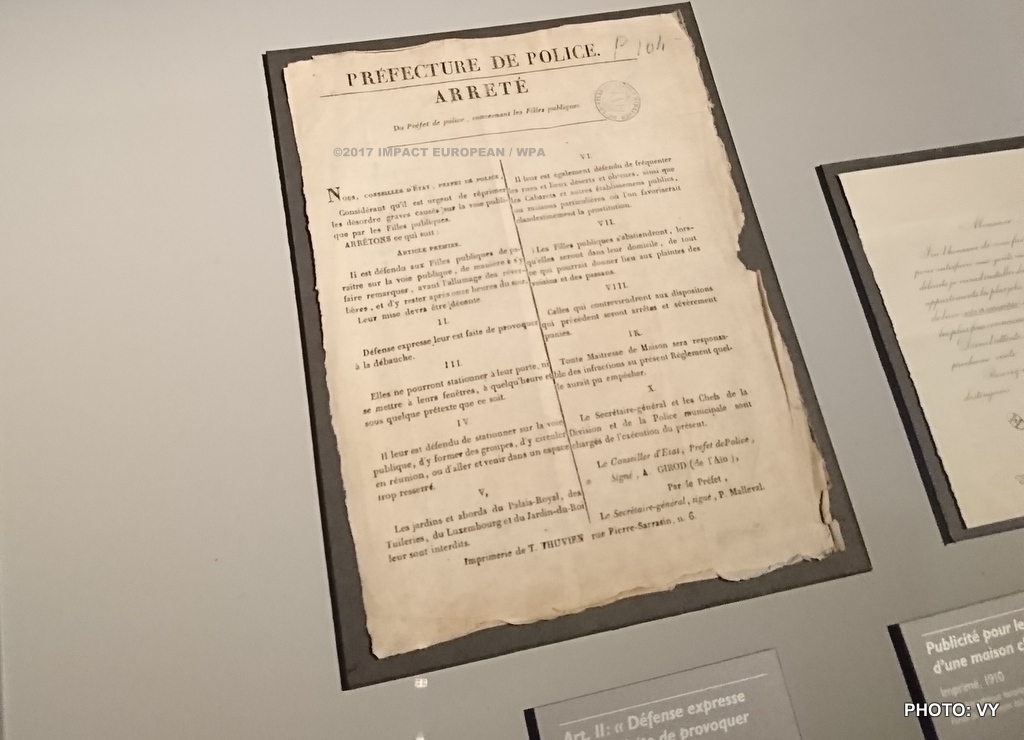 PRÉFECTURE DE POLICE.
P 104
ARRETÉ
Du Préfet de police, concernant les Filles publiques
©2017 IMPACT EUROPEAN / WPA
NOUS, CONSEILLER D'ÉTAT, PREFET DE POLICE,
Considérant qu'il est urgent de réprimer
les désordre graves causés sur la voie publi-
que par les Filles publiques.
ARRÊTONS ce qui suit:
ARTICLE PREMIER.
Il est défendu aux Filles publiques de pa-
raître sur la voie publique, de manière à s'y
faire remarquer, avant l'allumage des réver-
bères, et d'y rester après onze heures du soir.
Leur mise devra être décente.
II.
Défense expresse leur est faite de provoquer
à la débauche.
III.
Elles ne pourront stationner à leur porte, ni
se mettre à leurs fenêtres, à quelqu'heure et
sous quelque prétexte que ce soit.
IV
Il leur est défendu de stationner sur la voie
publique, d'y former des groupes, d'y circuler
en réunion, ou d'aller et venir dans un espace
trop resserré.
V,
Les jardins et abords du Palais-Royal, des
Tuileries, du Luxembourg et du Jardin-du-Roi
leur sont interdits.
VI.
Il leur est également défendu de fréquenter
les rues et lieux déserts et obscurs, ainsi que
les Cabarets et autres établissemens publics,
ou maisons particulières où l'on favoriserait
clandestinement la prostitution.
VII.
Les Filles publiques s'abstiendront, lors-
qu'elles seront dans leur domicile, de tout
ce qui pourrait donner lieu aux plaintes des
voisins et des passans.
VIII.
Celles qui contreviendront aux dispositons
qui précèdent seront arrêtés et sévèrement
punies.
IX.
Toute Maitresse de Maison sera responsa-
ble des infractions au présent Règlement quel-
le aurait pu empêcher.
X.
Le Secrétaire-général et les Chefs de la
Division et de la Police municipale sont
chargés de l'exécution du présent.
Le Conseiller d'Etat, Prefet de Police,
Signé, A GIROD (de l'Ain),
Par le Préfet,
Le Secrétaire-général, signé, P. Malleval.
Imprimerie de T. THUVIEN rue Pierre-Sarrasin, n. 6.
Monsieur
Art. II: « Défense expresse
de provoquer
Publicité pour le
d'une maison c
Imprimé, 1910
PHOTO: VY